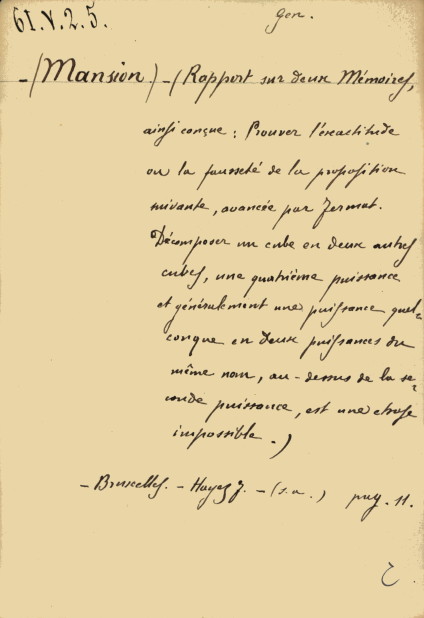 61.V.2.5.
Gen.
- (Mansion) - (Rapport sur deux Mémoires,
ainsi conçue : Prouver l'exactitude
ou la fausseté de la proposition
suivante, avancée par Fermat.
Décomposer un cube en deux autres
cubes, une quatrième puissance
et généralement une puissance quel-
conque en deux puissances du
même nom, au-dessus de la se-
conde puissance, est une chose
impossible.)
- Bruxelles. - Hayez J. - (s.a.) pag. 11.